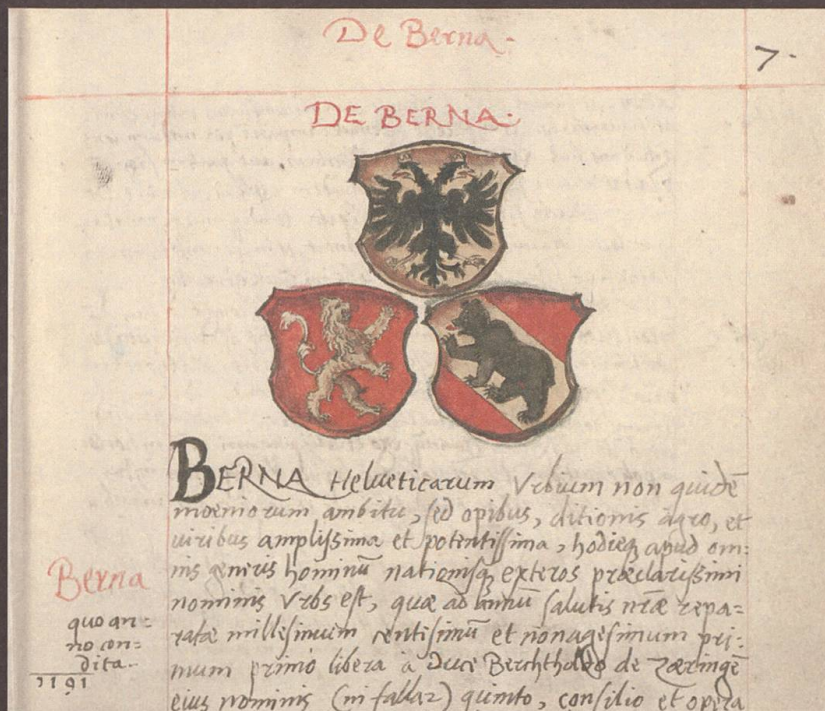 De Berna.
7.
DE BERNA.
BERNA Helveticarum Vrbium non quidē
moeniorum ambitu, sed opibus, ditionis agro, et
viribus amplissima et potentissima, hodieq apud om:
nis generis hominū nationisq exteros præclarissimi
nominis Vrbs est, quæ ad annū salutis nr̄æ repa=
ratæ millesimum centesimū et nonagesimum pri:
mum primo libera à Duce Berchtholdo de Zæringē
eius nominis (ni fallar) quinto, consilio et opera
Berna
quo an=
no con=
dita.
1191